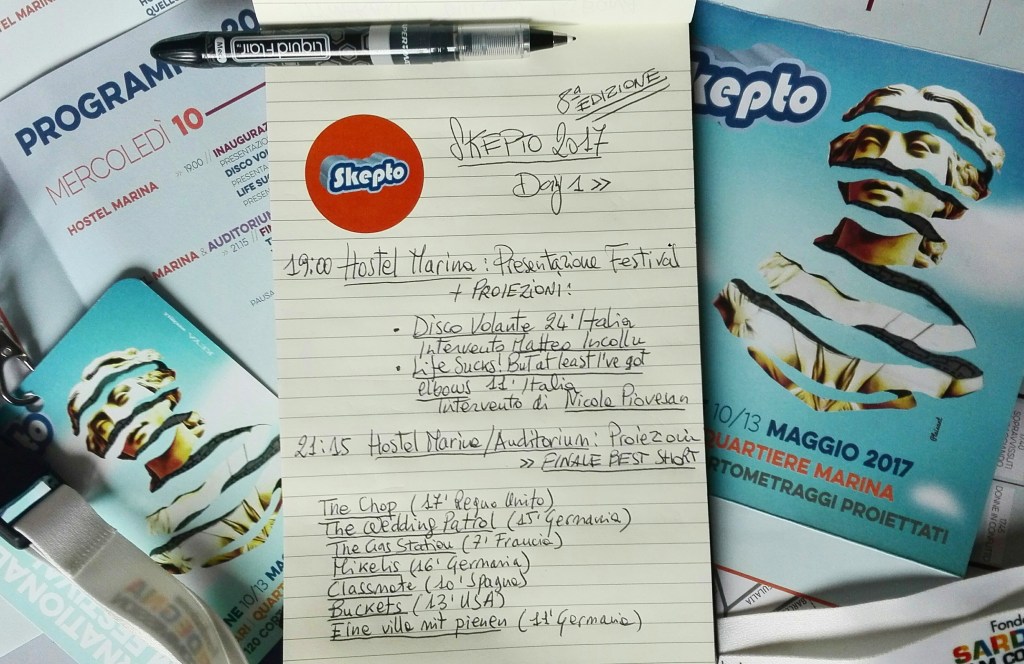 HOSTEL MARINA
QUELLO
PROGRAMM
20
MERCOLEDÌ 10
HOSTEL MARINA
» 19:00 // INAUGURAZ
PRESENTAZIO
DISCO VOL
PRESENTA
LIFE SU
PRESEN
MARINA & AUDITORIUM
» 21.15 // FI
PAUSA
Liquid Flair
8ª EDIZIONE
Skepto
SKEPTO 2017
Day 1 »
19:00 Hostel Marina: Presentazione Festival
+ PROIEZIONI:
• Disco Volante 24' Italia
Intervento Matteo Incollu
• Life Sucks! But at least I've got
elbows 11' Italia
Intervento di Nicola Piovesan
21:15 Hostel Marina/Auditorium: Proiezioni
» FINALE BEST SHORT
The Chop (17' Regno Unito)
The Wedding Patrol (15' Germania)
The Gas Station (7' Francia)
Mikelis (16' Germania)
Classmate (10' Spagna)
Buckets (13' USA)
Eine villa mit pienen (11' Germania)
Skepto
10/13 MAGGIO 2017
QUARTIERE MARINA
RTOMETRAGGI PROIETTATI
10/13 MA
QUARTI
120 COR
Fonda
SARD